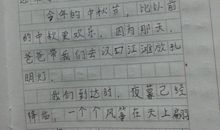 今年的中秋节，比以前
的中秋更欢乐，因为那天，
爸爸带我们去汉口江滩放孔
明灯。
我们到达时，夜幕已经
降临，一个个风筝在天上翩